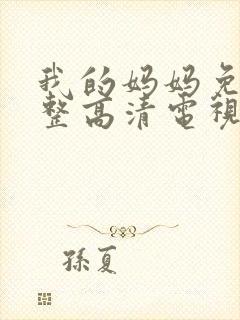 我的妈妈免
整高清電視
孫夏